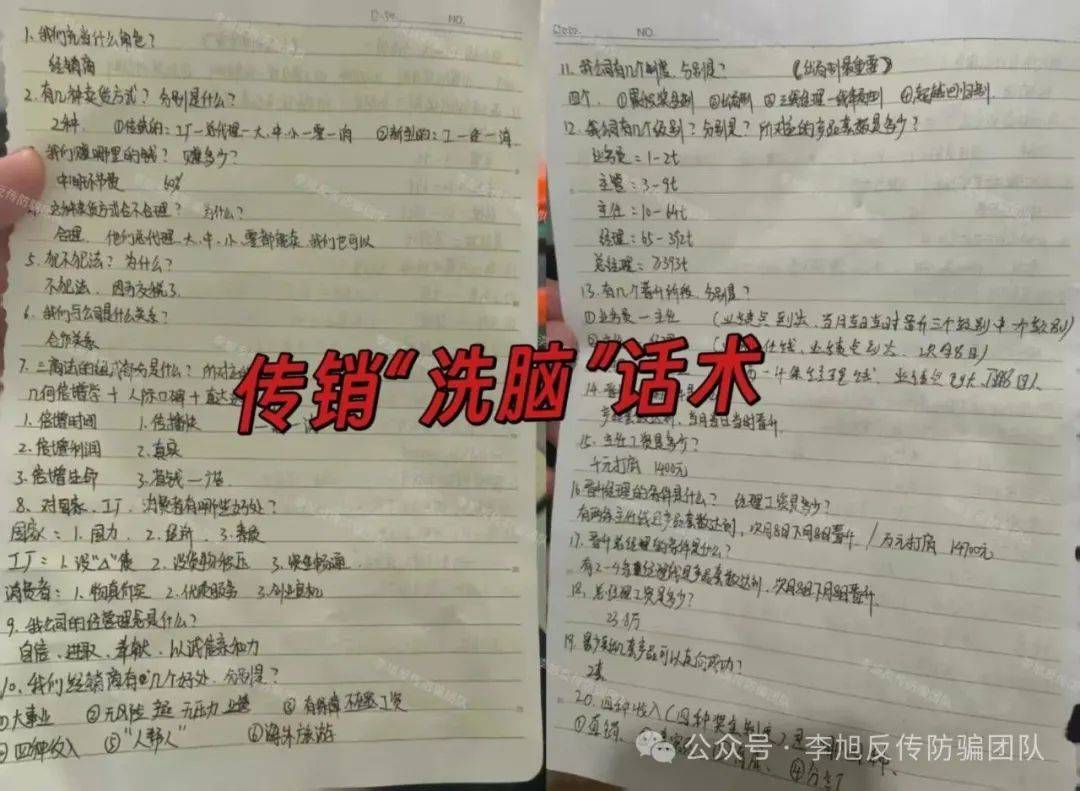 NO.
1、我们充当什么角色？
经销商
2.有几种卖货方式？分别是什么？
2种. ①传统的：工厂-总代理-大、中、小-零-消 ②新型的：工-经-消
我们赚哪里的钱？赚多少？
中间环节费 60%
这种卖货方式合不合理？ 为什么？
合理、他们总代理、大、中、小、零都能卖、我们也可以
5、犯不犯法？为什么？
不犯法、因为交税了.
6、我们与公司是什么关系？
合作关系
7、三商法的组成部分是什么？
几何倍增学 + 人际口碑 + 直达
1.倍增时间 1.传播快
2.倍增利润 2.真实
3.倍增生命 3.省钱
8、对国家、工厂、消费者有哪些好处？
国家：1.国力、2.经济、3.素质
工厂：1.没“△”债 2.没货物积压 3.渠道畅通
消费者：1.物真价实 2.优质服务 3.创业良机
9、我公司的经营理念是什么？
自信、进取、奉献、以诚信亲和力
10、我们经销商有几个好处、分别是？
①大事业 ②无风险 无压力 ③有保障 工资
④四种收入 ⑤“人帮人” ⑥海外旅游
NO.
11、我公司有几个制度、分别是？ 《出局制最重要》
四个. ②出局制
12、我公司有几个级别？分别是？所对应的产品套数是多少？
业务员：1-2t
主管：3-9t
主任：10-64t
经理：65-392t
总经理：≥393t
13.有几个晋升阶段、分别是？
①业务员-主任 (业绩点到达、当月当日当时晋升三个级别中
14.
当月当日当时晋升.
15、主任工资是多少？
千元打底 1400元
16.晋升经理的条件是什么？ 经理工资是多少？
有两条主任线且产品套数达到、次月8日下月8日晋升 / 万元打底 14700元
17、晋升总经理的条件是什么？
有2-4条经理线且产品套数达到、次月8日下月8日晋升.
18、总经理工资是多少？
23.8万
19、最少卖出几套产品可以走向成功？
2套
20、四种收入(四种奖金制度)
①直销、
传销“洗脑”话术
公众号·李旭反传防骗团队
李旭反传防骗团队